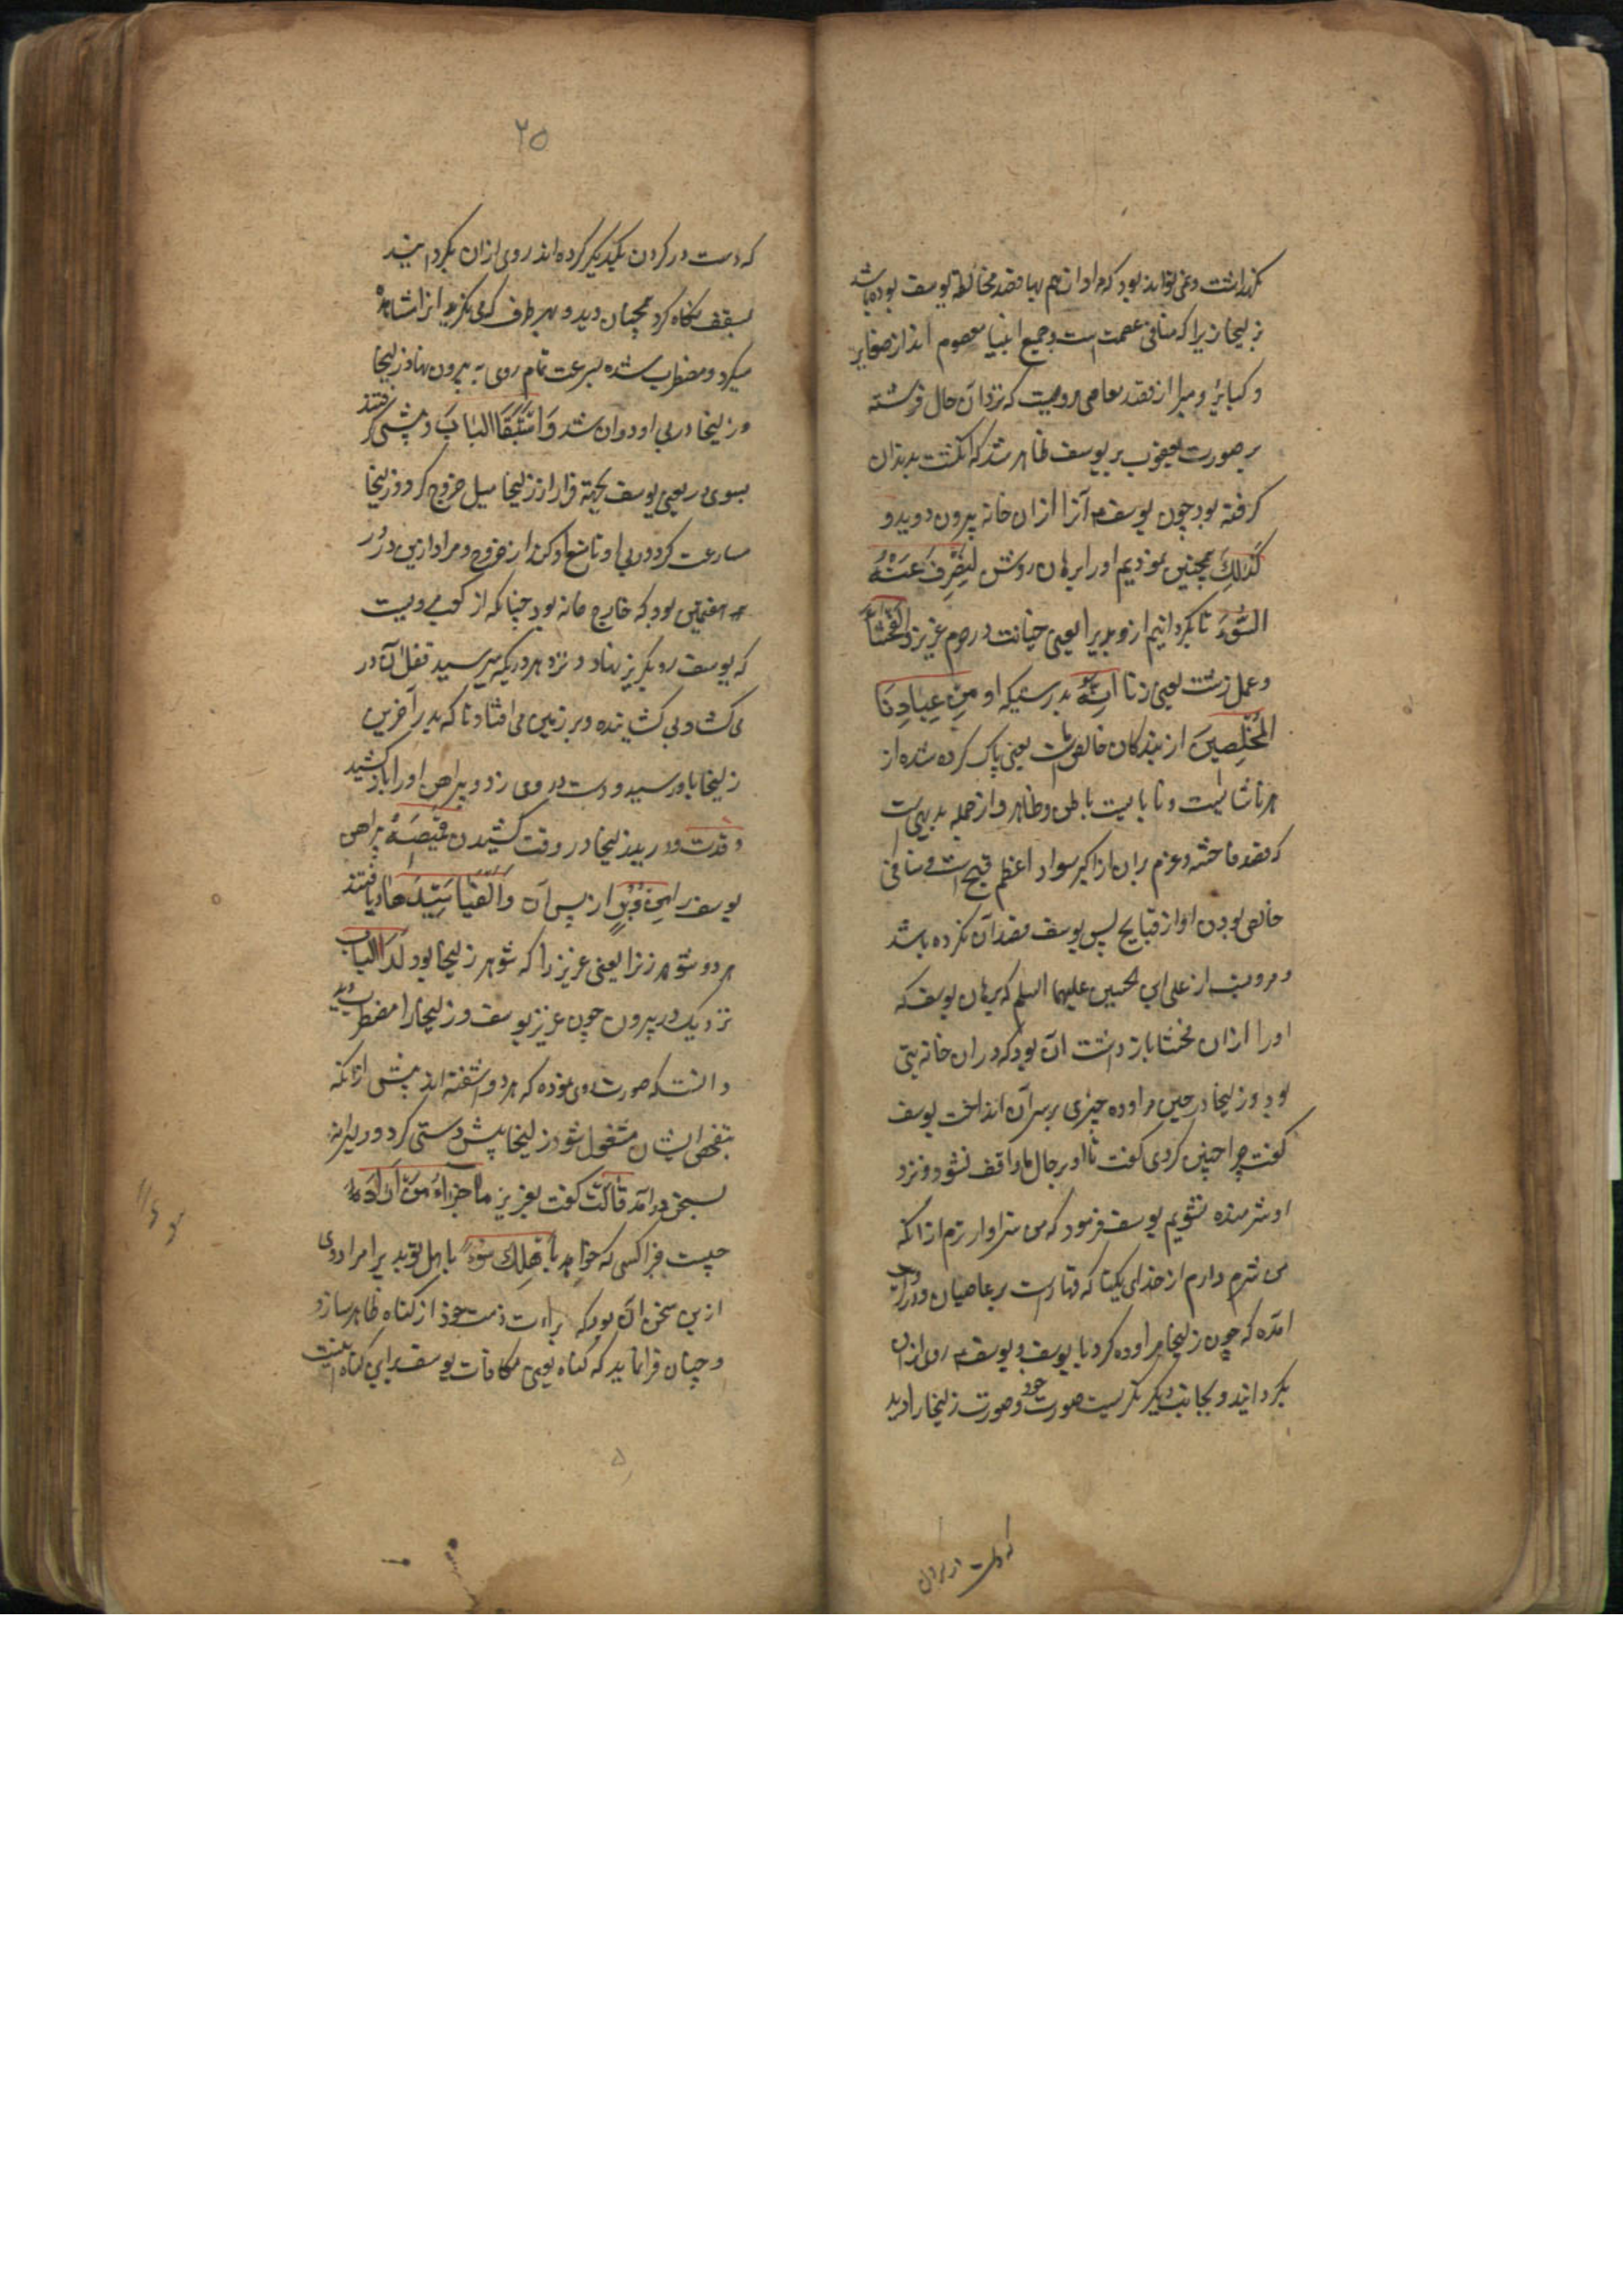 نگذاشت و نمی‌تواند بود که مراد از هم بها قصد مخالطه یوسف بوده باشد
بزلیخا زیرا که منافی عصمت است و جمیع انبیا معصوم اند از صغایر
و کبایر و مبرا از قصد معاصی مرویست که نزد آن حال فرشته
بر صورت یعقوب بر یوسف ظاهر شد که انگشت بدندان
گرفته بود چون یوسف آنرا از ان خانه بیرون دوید و
كَذٰلِكَ همچنین نمودیم او را برهان روشن لِنَصْرِفَ عَنْهُ
السُّوءَ تا بگردانیم ازو بدیرا یعنی خیانت در حرم عزیز وَالْفَحْشَاءَ
و عمل زشت یعنی زنا اِنَّهُ بدرستیکه او مِنْ عِبَادِنَا
الْمُخْلَصِينَ از بندکان خالص ماست یعنی پاک کرده شده از
هر ناشایست و نابایست باطن و ظاهر و از جمله بدیهی است
که قصد فاحشه و عزم بران از اکبر سواد اعظم قبیح است و منافی
خالص بودن او از قبایح پس یوسف قصد آن نکرده باشد
و مرویست از علی ابن الحسین علیهما السلم که برهان یوسف که
او را از ان فحشا باز داشت ان بود که دران خانه بتی
بود و زلیخا در حین مراوده چیزی بر سر آن انداخت یوسف
گفت چرا چنین کردی گفت تا او بر حال ما واقف نشود و نزد
او شرمنده نشویم یوسف فرمود که من سزاوار ترم از انکه
من شرم دارم از خدای یکتا که قهار است بر عاصیان و در روایت
امده که چون زلیخا مراوده کرد با یوسف و یوسف روی از ان
بگردانید و بجانب دیگر نگریست صورت خود و صورت زلیخا را دید
که دست در گردن
۲۵
که دست در گردن یکدیگر کرده اند روی ازان بگردانید
بسقف نگاه کرد همچنان دید و بهر طرف که می نگریست انرا مشاهده
میکرد و مضطرب شده بسرعت تمام روی به بیرون نهاد و زلیخا
و زلیخا در پی او دوان شد وَاسْتَبَقَا الْبَابَ و پیشی گرفتند
بسوی در یعنی یوسف بجهة فرار از زلیخا میل خروج کرد و زلیخا
مسارعت کرد در پی او تا منع او کند از خروج و مراد ازین در در
هفتمین بود که خارج خانه بود چنانکه از کعب مرویست
که یوسف رو بگریز نهاد و نزد هر دریکه میرسید قفل آن در
می گشاد بی گشاینده و بر زمین می افتاد تا که بدر آخرین
زلیخا باو رسید و دست در وی زد و پیراهن او را باز کشید
وَقَدَّتْ و درید زلیخا در وقت کشیدن قَمِيصَهُ پیراهن
یوسف را مِنْ دُبُرٍ از پس آن وَاَلْفَيَا سَيِّدَهَا و یافتند
هر دو شوهر زنرا یعنی عزیز را که شوهر زلیخا بود لَدَا الْبَابِ
نزدیک در بیرون چون عزیز یوسف و زلیخا را مضطرب دید
دانست که صورتی روی نموده که هر دو اشفته اند پیش از انکه
بتفحص ایشان مشغول شود زلیخا پیش دستی کرد و دلیرانه
بسخن درآمد قَالَتْ گفت بعزیز مَا جَزَاءُ مَنْ اَرَادَ
چیست جزا کسی که خواهد بِاَهْلِكَ سُوءً باهل تو بدیرا مراد وی
ازین سخن ان بود که براءت ذمت خود از گناه ظاهر سازد
و چنان فرا نماید که گناه یعنی مکافات یوسف برای گناه اینست